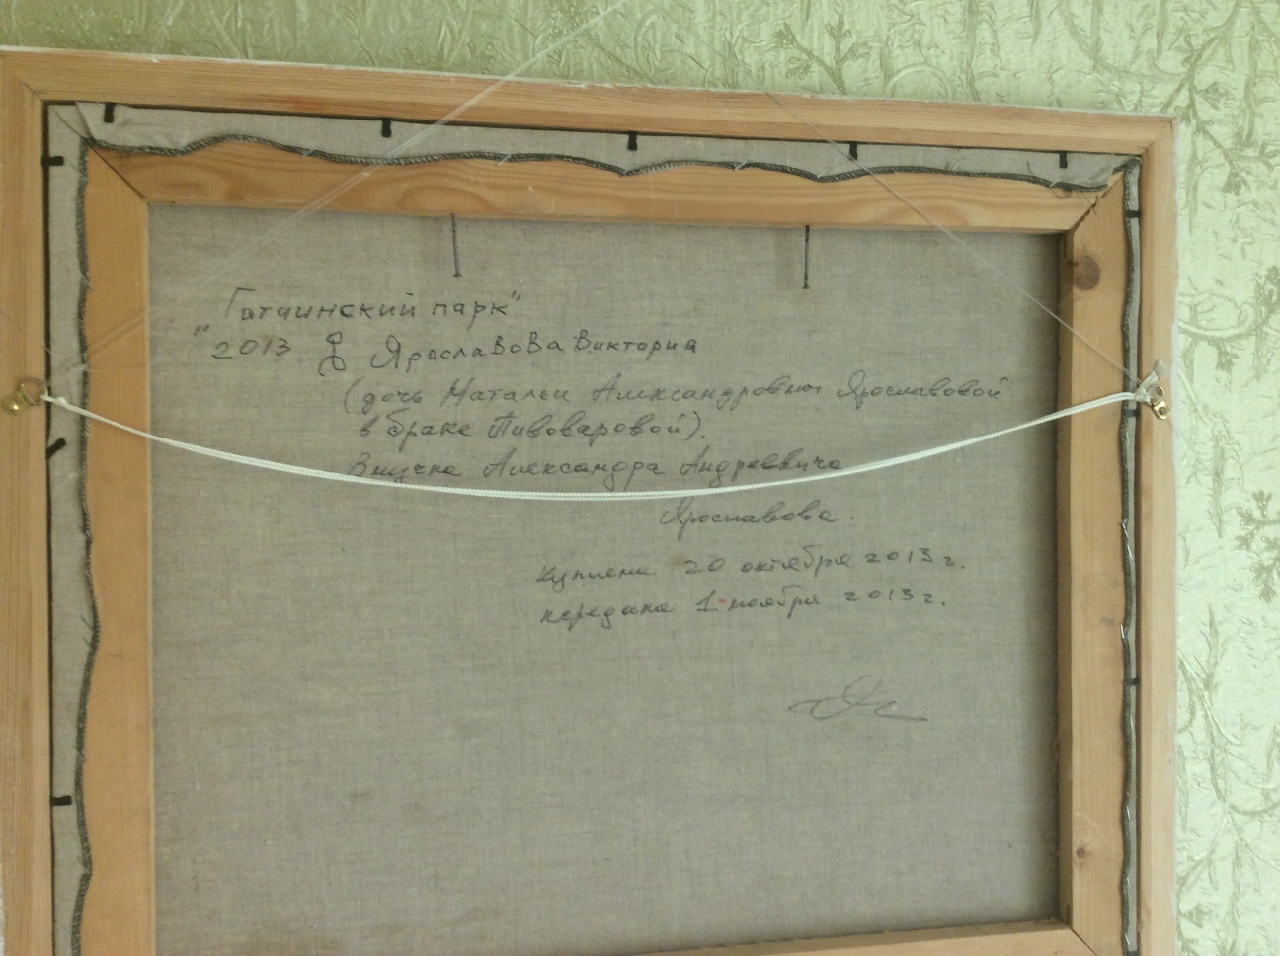 "Гатчинский парк"
2013 Ярославова Виктория
(дочь Натальи Александровны Ярославовой
в браке Пивоваровой).
Внучка Александра Андреевича
Ярославова.
куплена 20 октября 2013 г.
передана 1 ноября 2013 г.